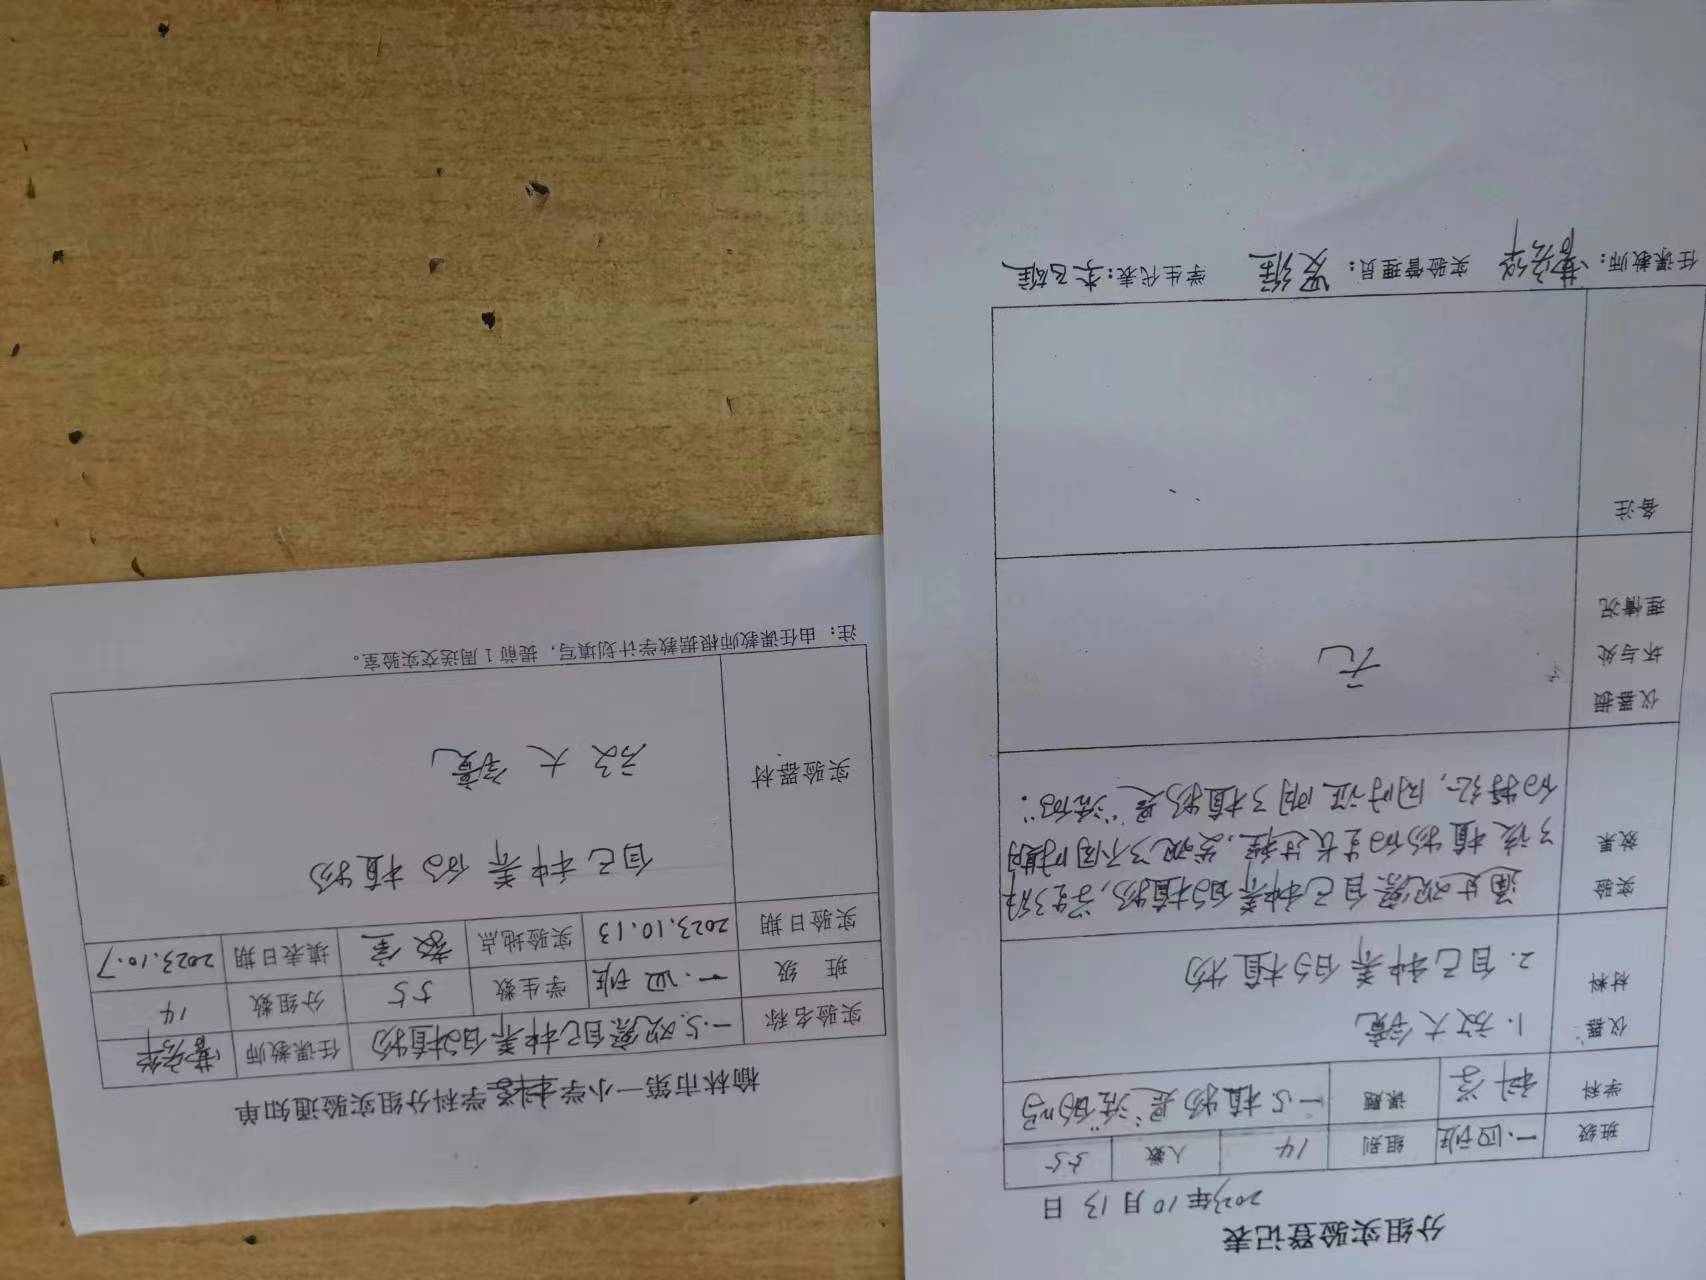 分组实验登记表
2023年10月13日
班级 一.四班 组别 14 人数 55
学科 科学 课题 一.5植物是"活"的吗
仪器材料 1.放大镜
2.自己种养的植物
实验效果 通过观察自己种养的植物,学生了解
了该植物的生长过程,发现了不同时期
的特征,同时证明了植物是"活的".
仪器损坏与处理情况 无
备注
任课教师: 实验管理员: 学生代表:
榆林市第一小学科学学科分组实验通知单
实验名称 一.5.观察自己种养的植物 任课教师
班 级 一.四班 学生数 55 分组数 14
实验日期 2023.10.13 实验地点 教室 填表日期 2023.10.7
实验器材 自己种养的植物
放大镜
注:由任课教师根据教学计划填写,提前1周送交实验室。